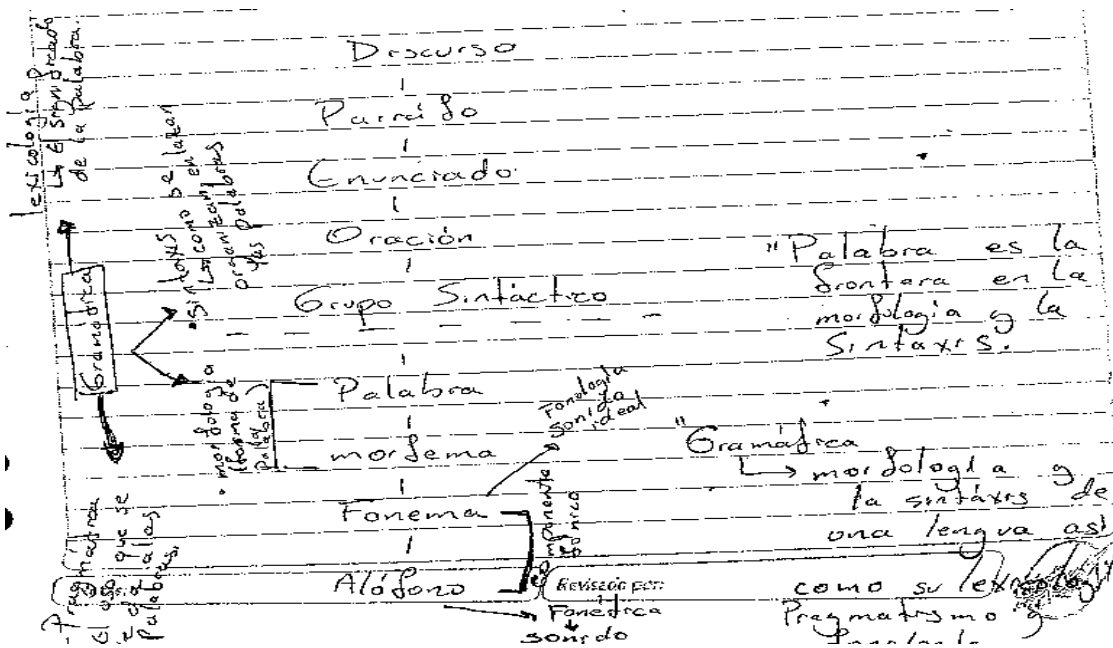 lexicología
↳ El significado
de la palabra.
Gramática
• Sintaxis
↳ como se enlazan
organizan
las palabras
• morfología
(forma de
la palabra)
- Pragmática
El uso que se
le da a las
palabras.
Discurso
Parráfo
Enunciado
Oración
Grupo Sintáctico
Palabra
morfema
Fonema
Alófono
Fonología
Sonido
ideal
componente
fónico
Revisado por:
Fonética
sonido
"Palabra es la
frontera en la
morfología y la
Sintaxis.
"Gramática
↳ morfología y
la sintáxis de
una lengua así
como su lexicología
Pragmatismo y